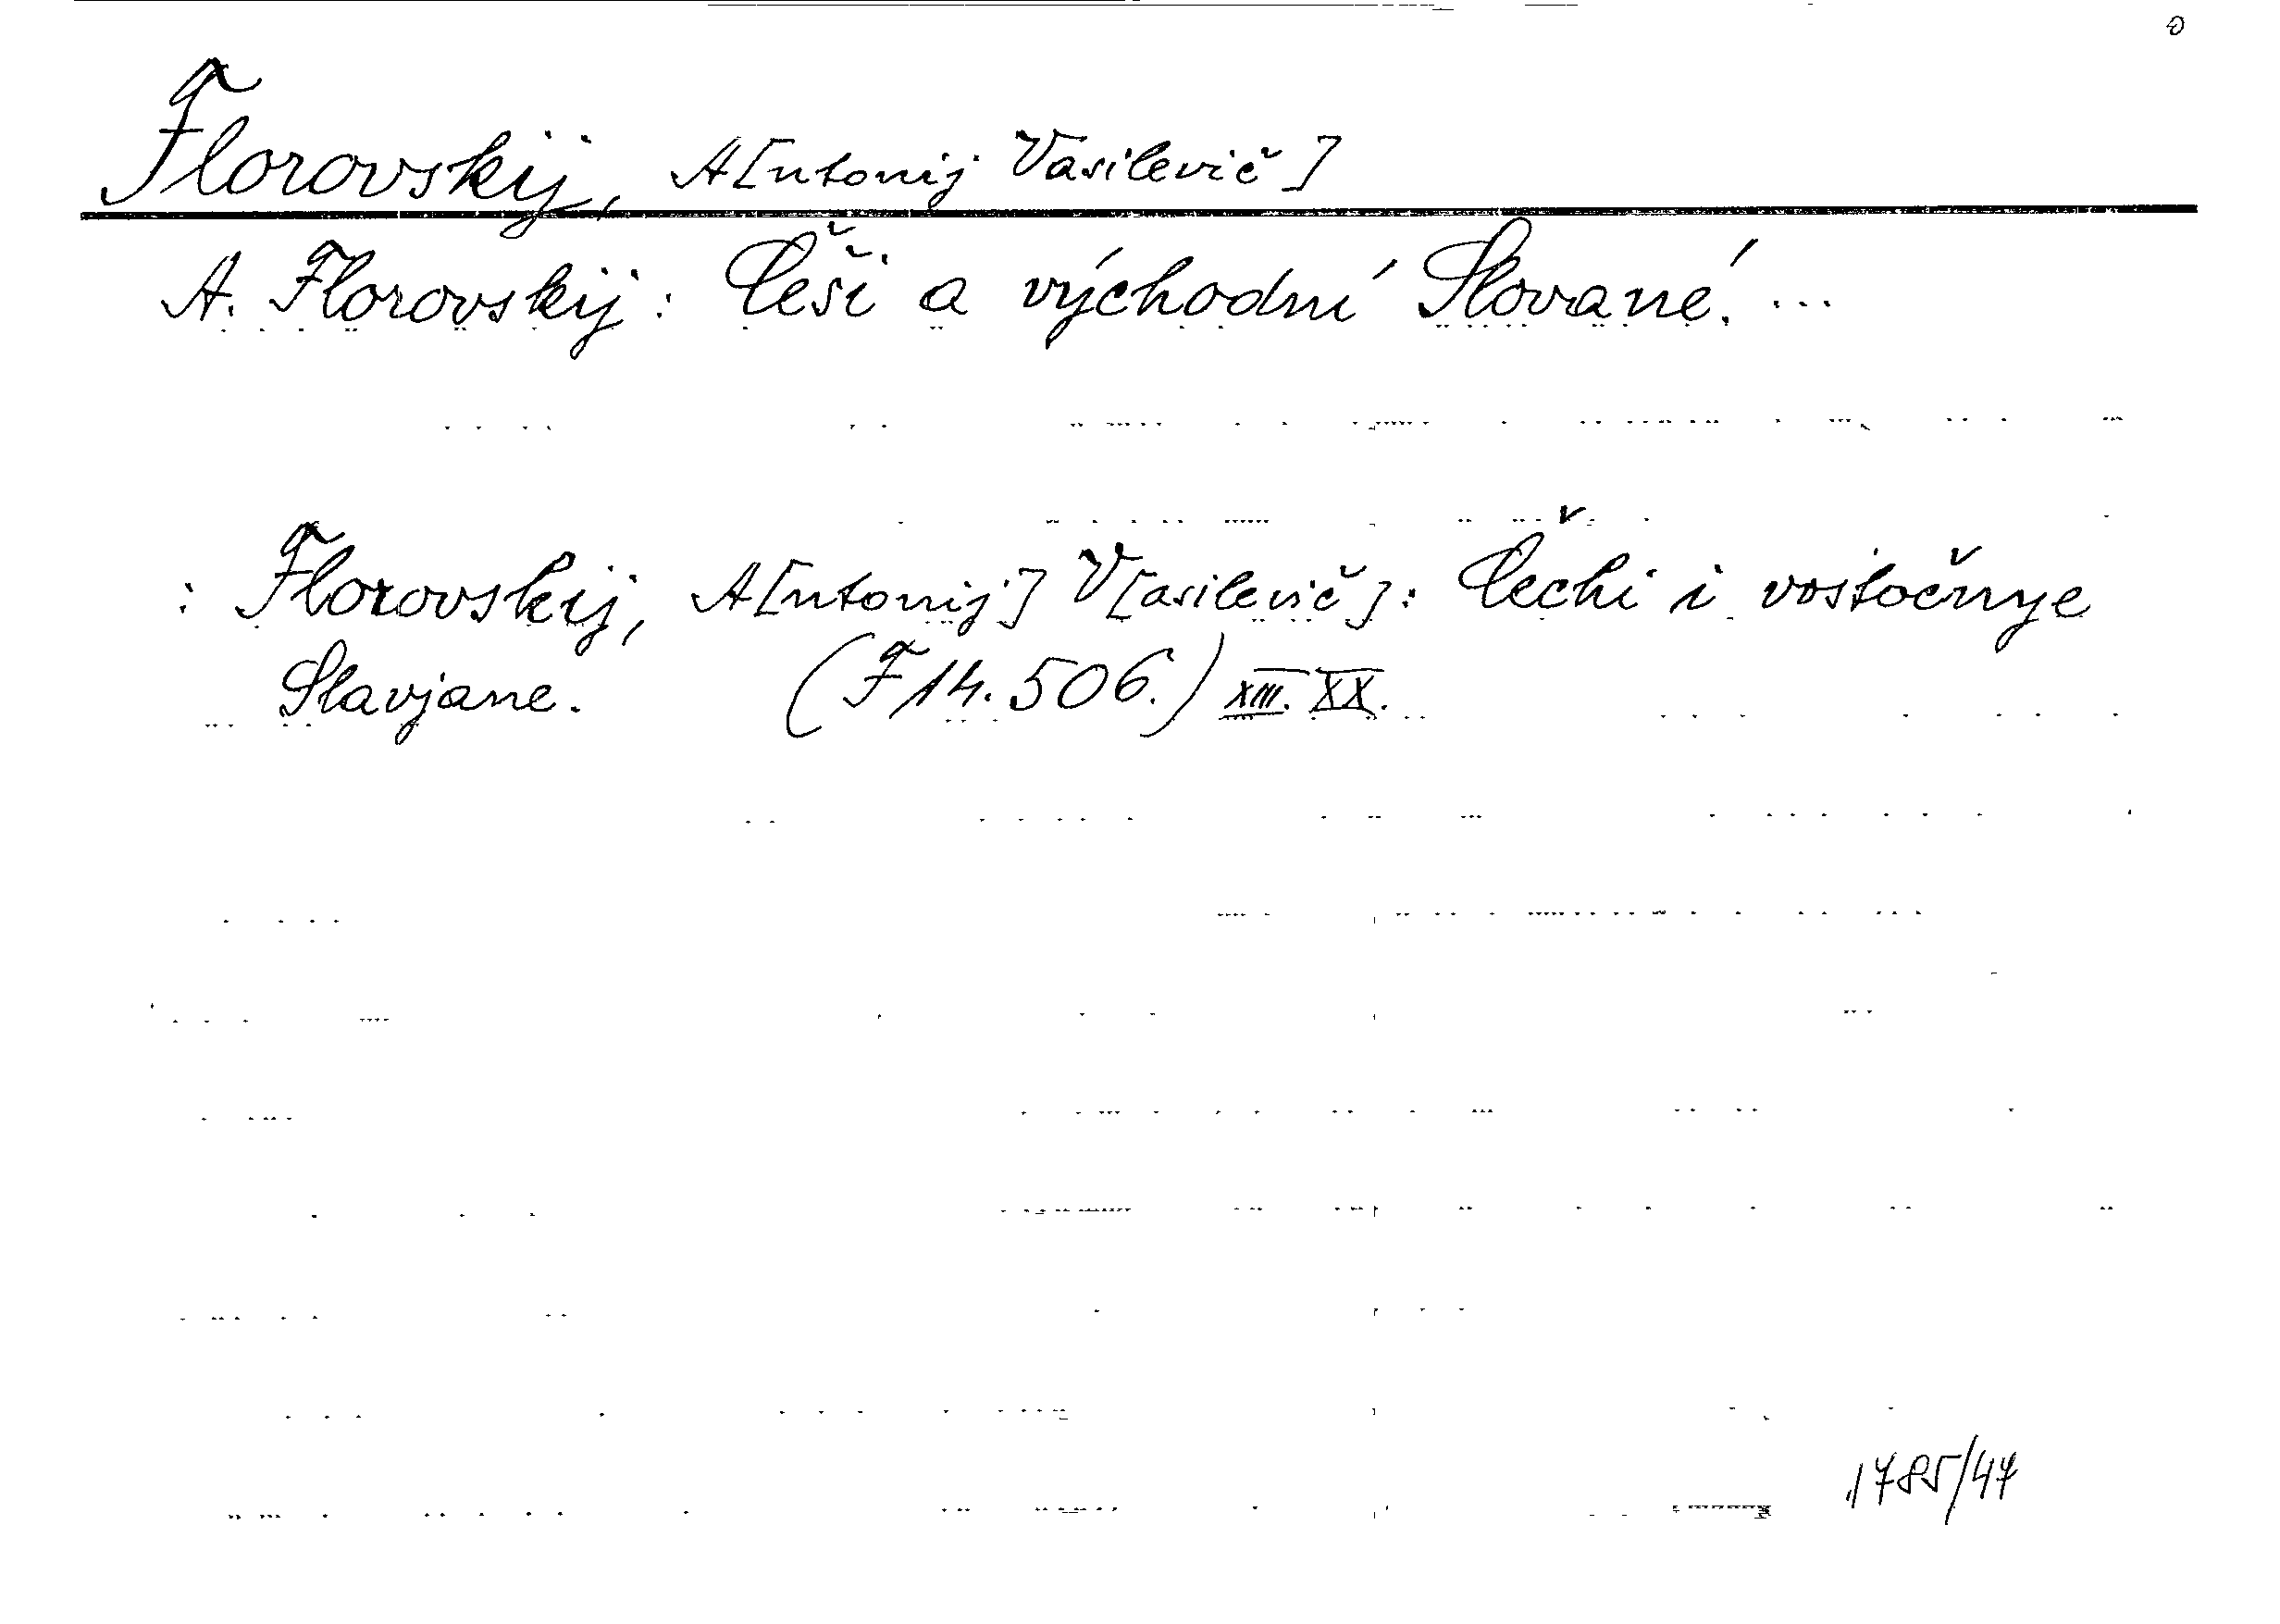 Florovskij, A[ntonij Vasilevič]
A. Florovskij: Češi a východní Slované. ...
: Florovskij, A[ntonij] V[asilevič]: Čechi i vostočnye
Slavjane. (F 14.506.) XIII. XX.
1785/47